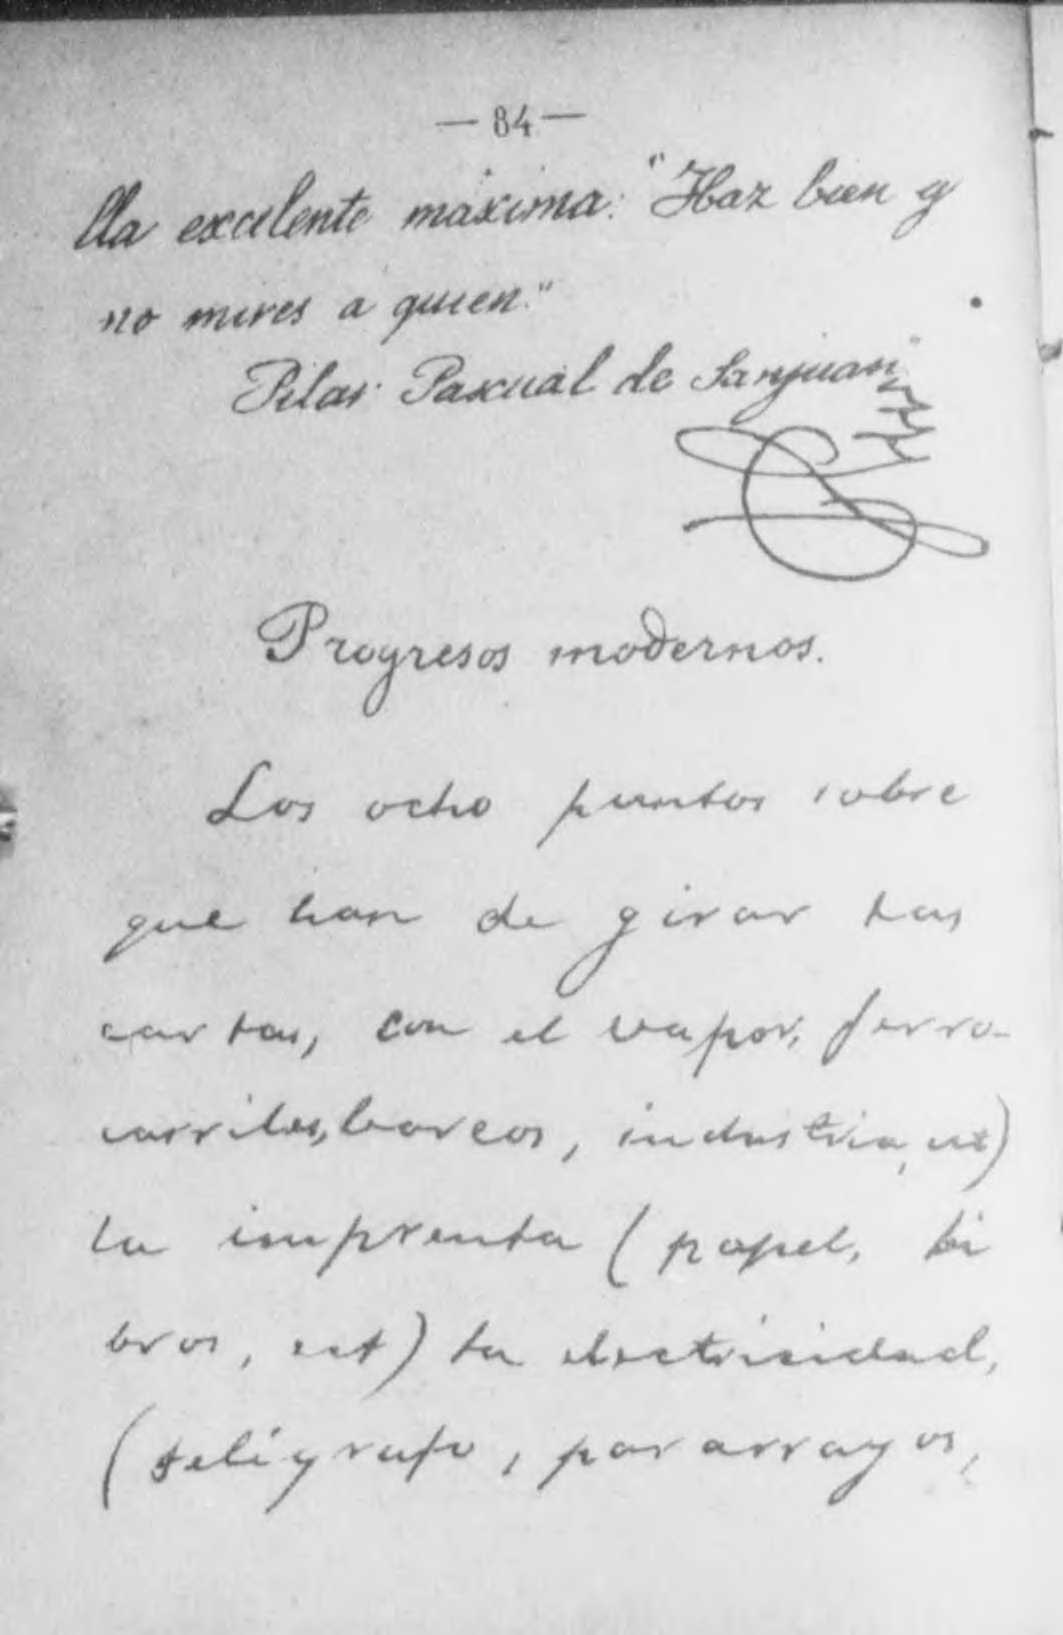 — 84 —
lla excelente máxima: "Haz bien y
no mires a quien."
Pilar Pascual de Sanjuan
Progresos modernos.
Los ocho puntos sobre
que han de girar las
cartas, con el vapor, ferro-
carriles, barcos, industria, ect)
la imprenta (papel, li
bros, ect) la electricidad,
(telégrafo, pararrayos,